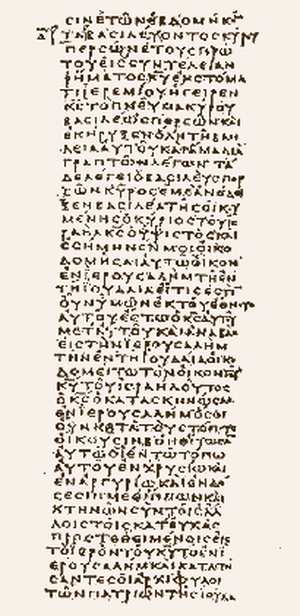 ϹΙΝΕΤΩΝΕΒΔΟΜΗΚΟΝ
ΤΑΒΑϹΙΛΕΥΟΝΤΟϹΚΥΡΟΥ
ΠΕΡϹΩΝΕΤΟΥϹΠΡΩ
ΤΟΥΕΙϹϹΥΝΤΕΛΕΙΑΝ
ΡΗΜΑΤΟϹΚΥΕΝϹΤΟΜΑ
ΤΙΙΕΡΕΜΙΟΥΗΓΕΙΡΕΝ
ΚϹΤΟΠΝΕΥΜΑΚΥΡΟΥ
ΒΑϹΙΛΕΩϹΠΕΡϹΩΝΚΑΙ
ΕΚΗΡΥΞΕΝΟΛΗΤΗΒΑϹΙ
ΛΕΙΑΑΥΤΟΥΚΑΙΑΜΑΔΙΑ
ΓΡΑΠΤΩΝΛΕΓΩΝΤΑ
ΔΕΛΕΓΕΙΟΒΑϹΙΛΕΥϹΠΕΡ
ϹΩΝΚΥΡΟϹΕΜΕΑΝΕΔΕΙ
ΞΕΝΒΑϹΙΛΕΑΤΗϹΟΙΚΟΥ
ΜΕΝΗϹΟΚΥΡΙΟϹΤΟΥΙϹ
ΡΑΗΛΚϹΟΥΨΙϹΤΟϹΚΑΙ
ΕϹΗΜΗΝΕΝΜΟΙΟΙΚΟ
ΔΟΜΗϹΑΙΑΥΤΩΟΙΚΟΝ
ΕΝΙΕΡΟΥϹΑΛΗΜΤΗΕΝ
ΤΗΙΟΥΔΑΙΑΕΙΤΙϹΕϹΤΙΝ
ΟΥΝΥΜΩΝΕΚΤΟΥΕΘΝΟΥϹ
ΑΥΤΟΥΕϹΤΩΟΚϹΑΥΤΟΥ
ΜΕΤΑΥΤΟΥΚΑΙΑΝΑΒΑϹ
ΕΙϹΤΗΝΙΕΡΟΥϹΑΛΗΜ
ΤΗΝΕΝΤΗΙΟΥΔΑΙΑΟΙΚΟ
ΔΟΜΕΙΤΩΤΟΝΟΙΚΟΝΤΟΥ
ΚΥΤΟΥΙϹΡΑΗΛΟΥΤΟϹ
ΟΚϹΟΚΑΤΑϹΚΗΝΩϹΑϹ
ΕΝΙΕΡΟΥϹΑΛΗΜΟϹΟΙ
ΟΥΝΚΑΤΑΤΟΥϹΤΟΠΟΥϹ
ΟΙΚΟΥϹΙΝΒΟΗΘΕΙΤΩϹΑΝ
ΑΥΤΩΟΙΕΝΤΩΤΟΠΩ
ΑΥΤΟΥΕΝΧΡΥϹΙΩΚΑΙ
ΕΝΑΡΓΥΡΙΩΚΑΙΕΝΔΟ
ϹΕϹΙΝΜΕΘΙΠΠΩΝΚΑΙ
ΚΤΗΝΩΝϹΥΝΤΟΙϹΑΛ
ΛΟΙϹΤΟΙϹΚΑΤΕΥΧΑϹ
ΠΡΟϹΤΕΘΕΙΜΕΝΟΙϹΕΙϹ
ΤΟΙΕΡΟΝΤΟΥΚΥΤΟΕΝΙ
ΕΡΟΥϹΑΛΗΜΚΑΙΚΑΤΑϹΤΗ
ϹΑΝΤΕϹΟΙΑΡΧΙΦΥΛΟΙ
ΤΩΝΠΑΤΡΙΩΝΤΗϹΙΟΥΔΑ